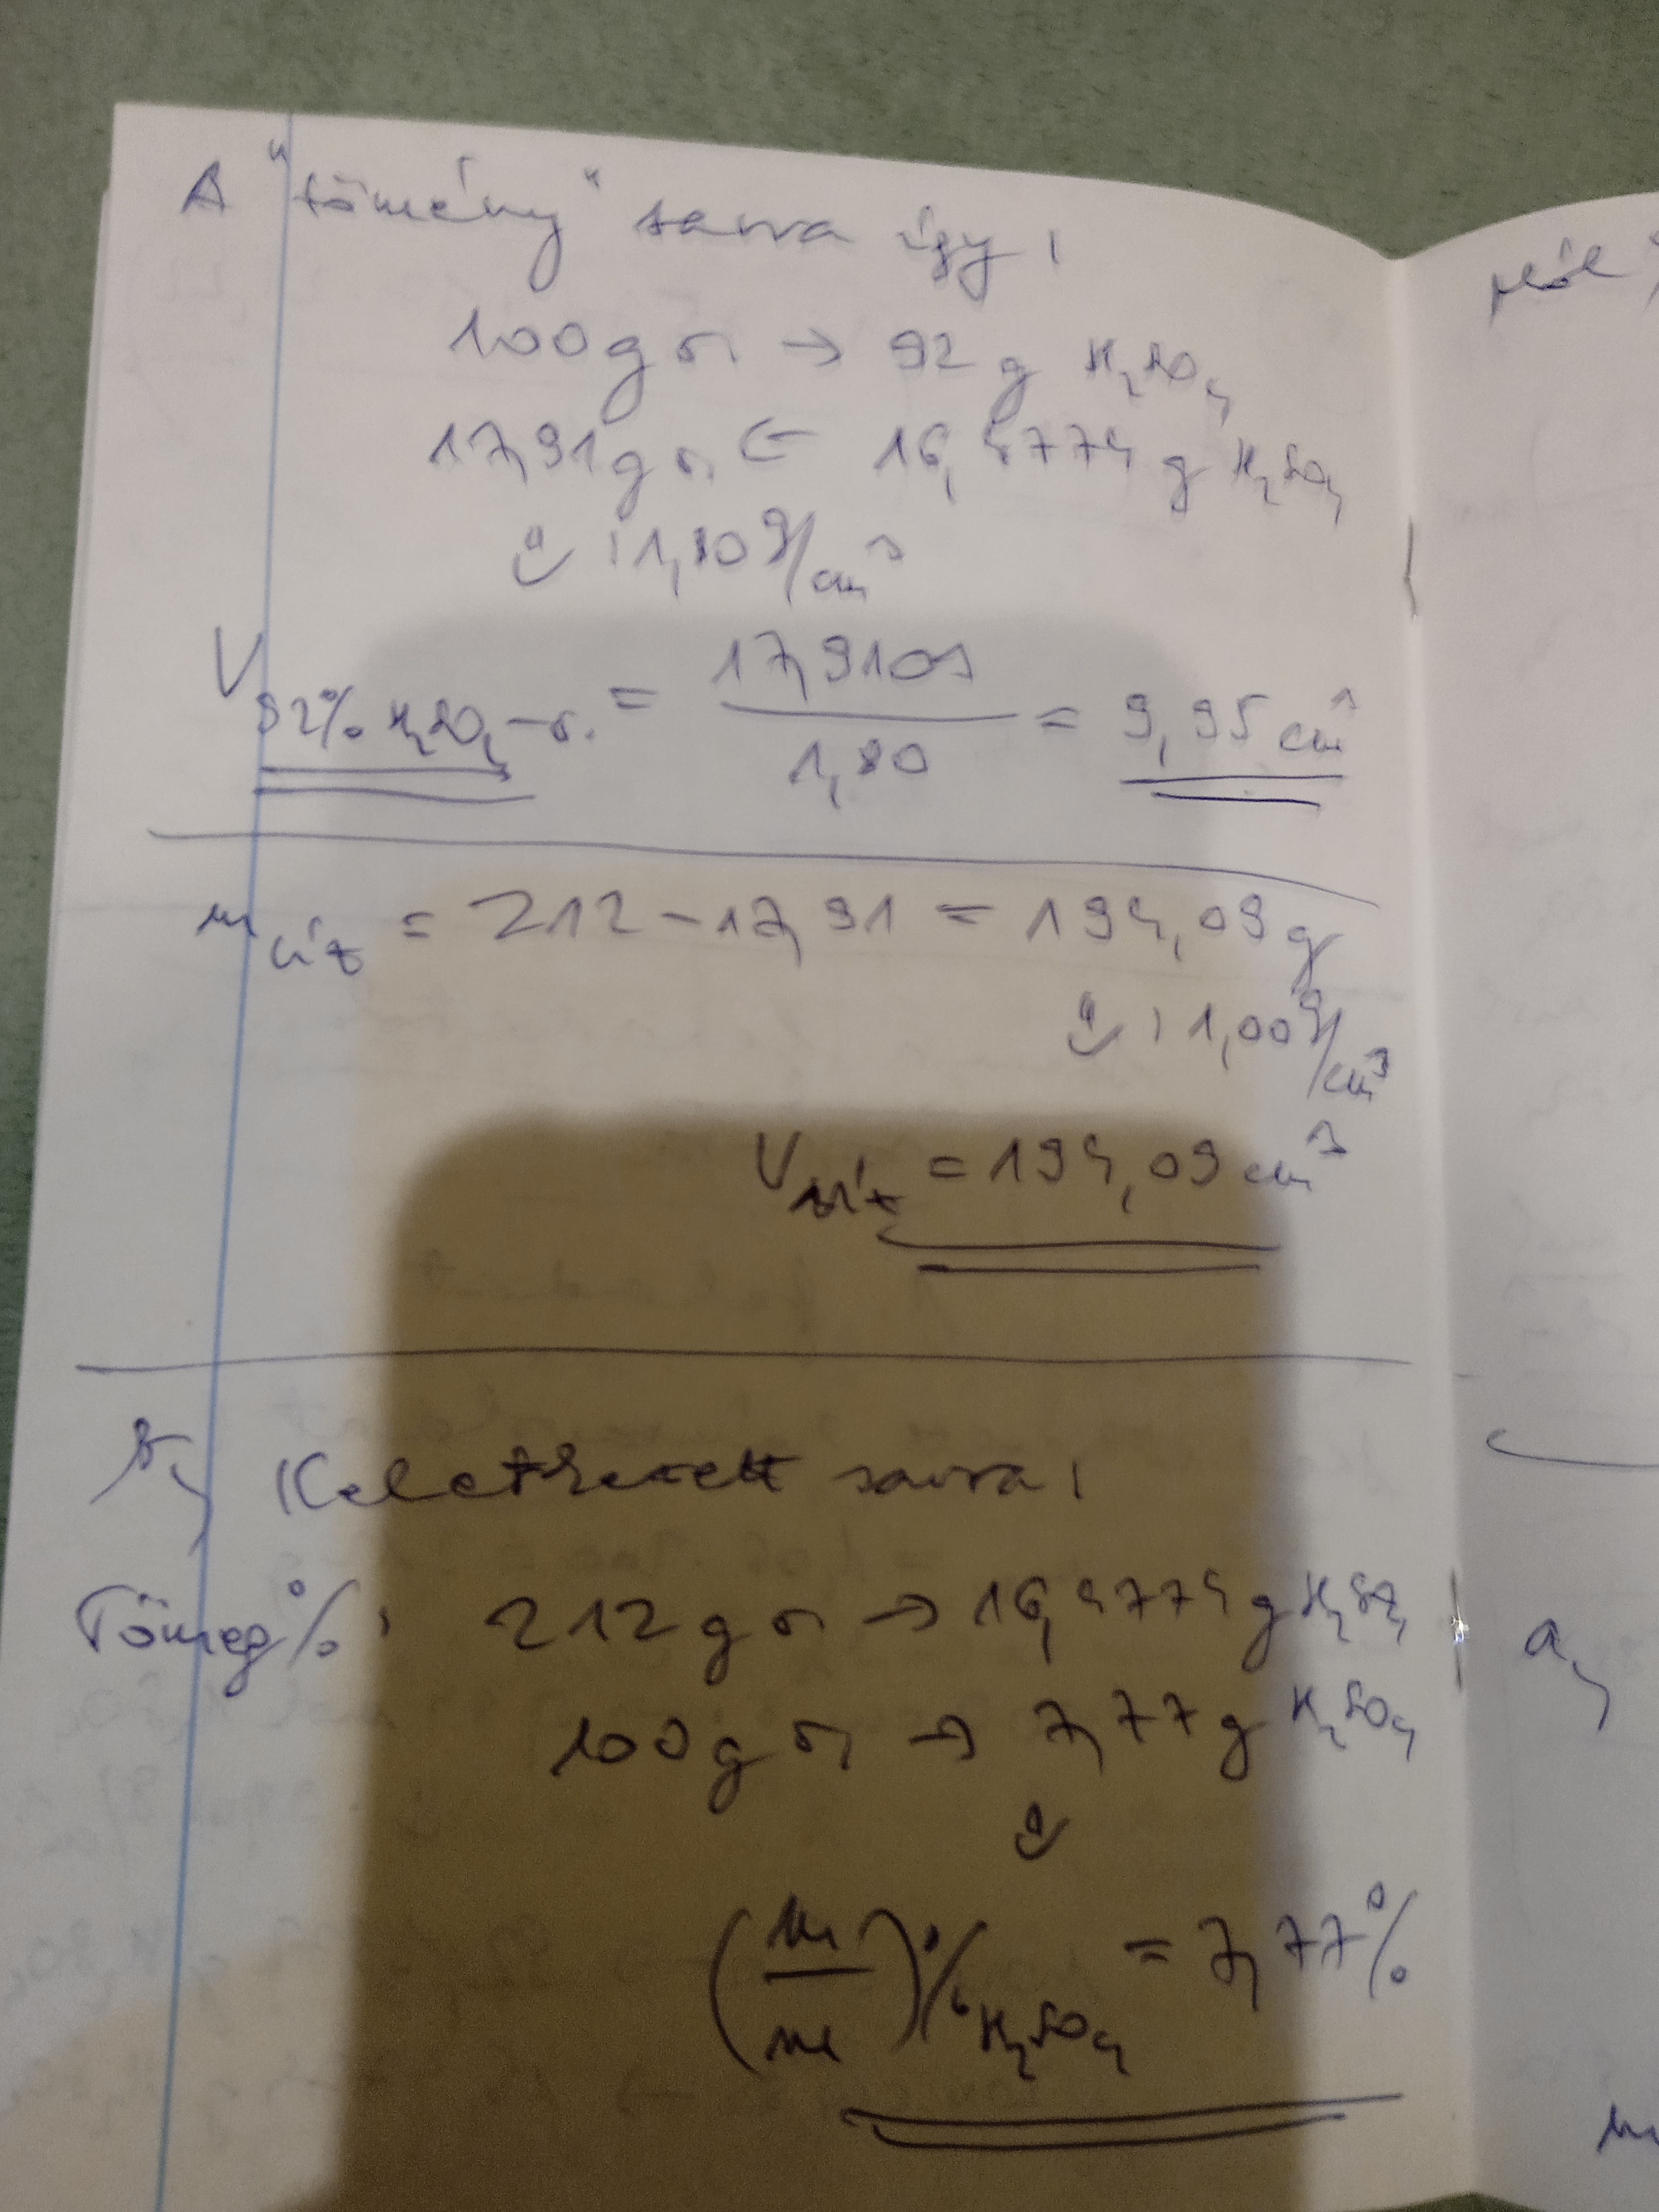 A "tömény" savra így:
100 g o. → 92 g H₂SO₄
17,91 g o. ← 16,4774 g H₂SO₄
: 1,80 g/cm³
V 92% H₂SO₄-o. = 17,9109 / 1,80 = 9,95 cm³
m víz = 212 - 17,91 = 194,09 g
: 1,00 g/cm³
V víz = 194,09 cm³
b, Keletkezett savra:
Tömeg%: 212 g o. → 16,4774 g H₂SO₄
100 g o. → 7,77 g H₂SO₄
(m/m)% H₂SO₄ = 7,77%
a,